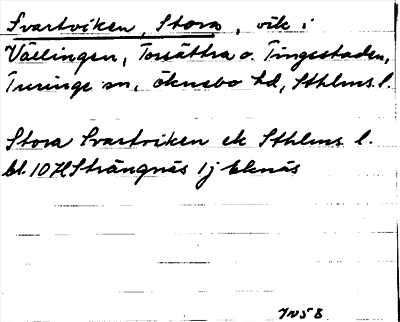 Svartviken, Stora, vik i
Vällingen, Torsättra o. Tingsstaden,
Turinge sn, Öknebo hd, Sthlms l.
Stora Svartviken ek Sthlms l.
bl. 10 H Strängnäs 1j Eknäs